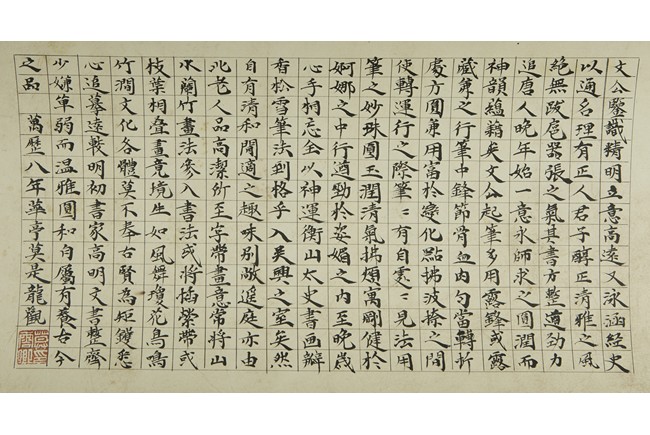 文公鑒識精明立意高遠又泳涵經史
以通名理有正人君子醇正清雅之風
絕無跋扈囂張之氣其書方整遒勁力
追唐人晚年始一意永師求之圓潤而
神韻蘊藉矣文公起筆多用露鋒或露
藏兼之行筆中鋒節骨血肉勻當轉折
處方圓兼用富於變化點拂波捺之間
使轉運行之際筆〻有自〻見法用
筆之妙珠圓玉潤清氣拂煩寓剛健於
婀娜之中行遒勁於姿媚之內至晚歲
心手相忘全以神運衡山太史書画瓣
香松雪筆法到格乎入吳興之室矣然
自有清和閒適之趣味別敞遙庭亦由
此老人品高潔所至字帶畫意常將山
水蘭竹畫法參入書法或將縈帶或
枝葉相疊畫竟境生如風舞瓊花鳥鳴
竹澗文化各體莫不奉古賢為矩鑊悉
心追摹遠較明初書家高明文書整齊
少嫌單弱而溫雅圓和自屬有養古今
之品 萬歷八年華亭莫是龍觀